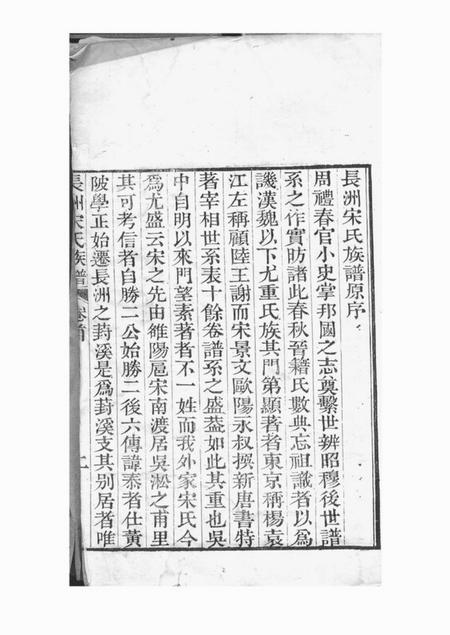 長洲宋氏族譜原序
周禮春官小史掌邦國之志奠繫世辨昭穆後世譜
系之作實昉諸此春秋晉籍氏數典忘祖識者以爲
譏漢魏以下尤重氏族其門第顯著者東京稱楊袁
江左稱顧陸王謝而宋景文歐陽永叔撰新唐書特
著宰相世系表十餘卷譜系之盛葢如此其重也吳
中自明以來門望素著者不一姓而我外家宋氏今
爲尤盛云宋之先由雎陽扈宋南渡居吳淞之甫里
其可考信者自勝二公始勝二後六傳諱泰者仕黄
陂學正始遷長洲之葑溪是爲葑溪支其别居者唯
長洲宋氏族譜 卷首 二